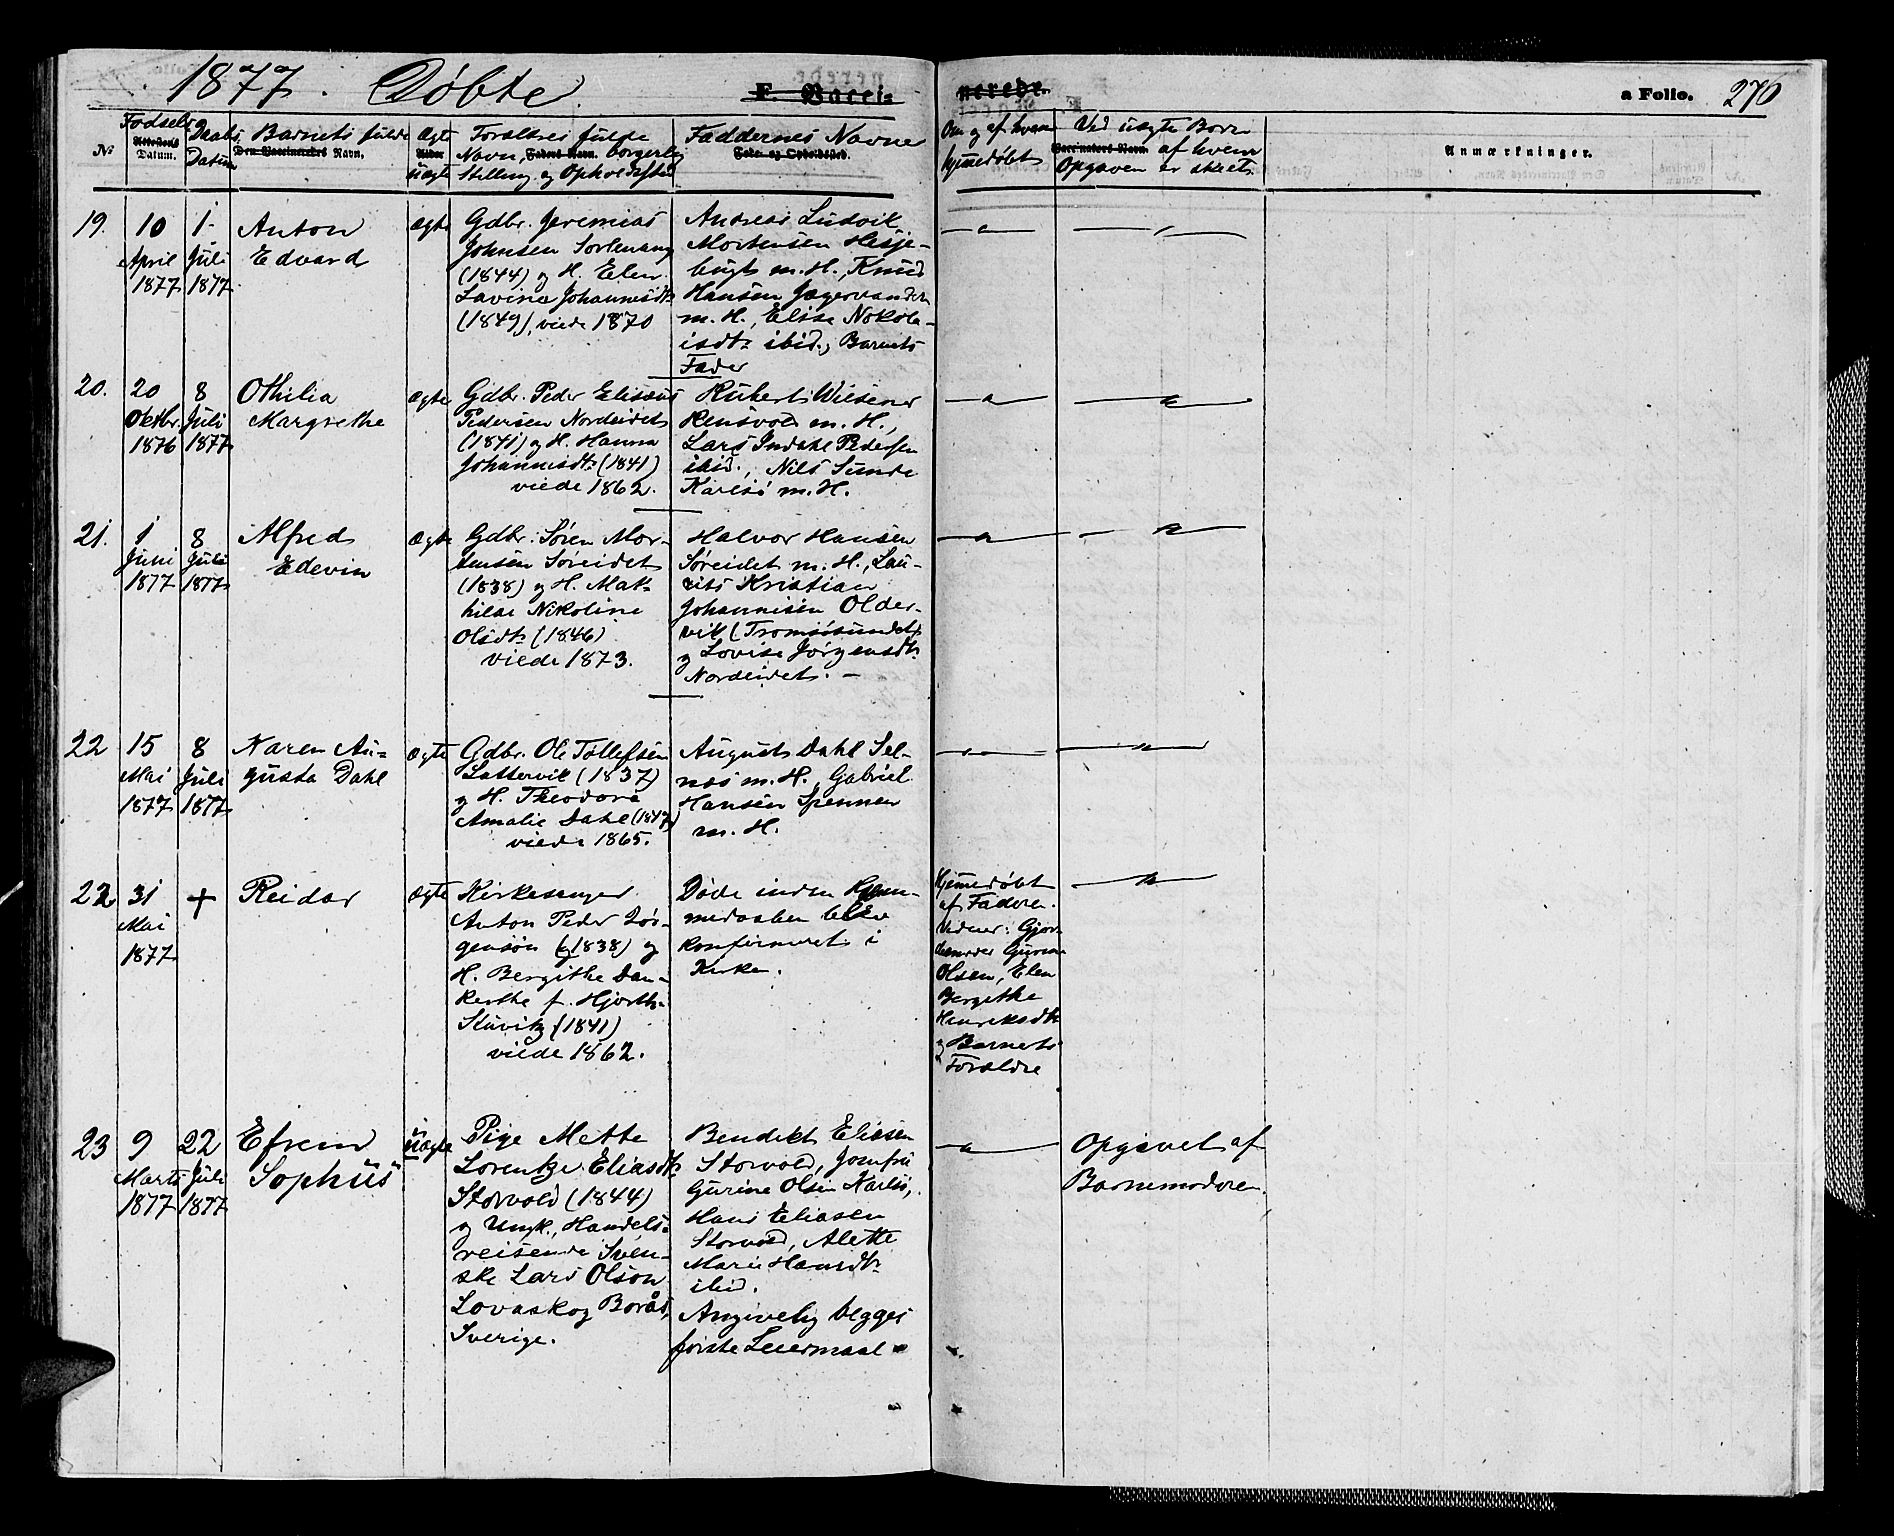 1877. Döbte. F. Vacci= nerede. a Folio. 276
No
Fødsels Attestens Datum.
Daabs Datum
Barnets fulde Den Vaccineredes Navn.
Ægte Alder Uægte
Forældres fulde
Navn, Faders Navn. borgerlig
Stilling og Opholdssted
Faddernes Navne
Føde- og Opholdssted.
Om og af hvem
hjemmedøbt
Ved uægte Børn
Vaccinators Navn. af hvem
Opgaven er skeet.
Anmærkninger.
19. 10 April 1877
1. Juli 1877
Anton
Edvard
ægte
Gdbr. Jeremias
Johnsen Sørlenang
(1844) og H. Elen
Lavina Johannesdtr
(1849), viede 1870
Andreas Ludvik
Mortensen Hesje-
bugt m. H., Knud
Hansen Jægervanden
m. H., Elise Nokola-
isdtr ibid., Barnets
Fader
20. 20 Oktbr. 1876
8 Juli 1877
Othilia
Margrethe
ægte
Gdbr. Peder Elisæus
Pedersen Nordeidet
(1841) og H. Hanna
Johannesdtr (1841)
viede 1862.
Rubert Wiesener
Rensvold m. H.,
Lars Indahl Pedersen
ibid., Nils Sunde
Karlsö m. H.
21. 1 Juni 1877
8 Juli 1877
Alfred
Edevin
ægte
Gdbr. Søren Mor-
tensen Søreidet
(1838) og H. Mat-
hilde Nikoline
Olsdtr (1846)
viede 1873.
Halvor Hansen
Søreidet m. H., Lau-
rits Kristian
Johannesen Older-
vik (Tromsösundet)
og Lovise Jörgensdtr
Nordeidet. –
22 15 Mai 1877
8 Juli 1877
Karen Au-
gusta Dahl
ægte
Gdbr. Ole Tollefsen
Lattervik (1837)
og H. Theodora
Amalie Dahl (1847)
viede 1865.
August Dahl Sel-
nes m. H., Gabriel
Hansen Spennen
m. H.
22 31 Mai 1877
+
Reidar
ægte
Kirkesanger
Anton Peder Jör-
gensøn (1838) og
H. Bergithe Dan-
kerthe f. Hjorth-
Stuvitz (1841)
viede 1862.
Døde inden Hjem-
medaaben blev
konfirmeret i
Kirken.
Hjemmedøbt
af Faderen.
Vidner: Gjor-
demoder Gurine
Olsen, Elen
Bergithe
Henriksdtr
og Barnets
Forældre
23 9 Marts 1877
22 Juli 1877
Efrem
Sophus
uægte
Pige Mette
Lorentze Eliasdtr
Storvold (1844)
og Ungk., Handels-
reisende Sven-
ske Lars Olson
Lovaskog Borås,
Sverige.
Bendikt Eliasen
Storvold, Jomfru
Gurine Olsen Karlsö,
Hans Eliasen
Storvold, Alette
Marie Hansdtr
ibid.
Angivelig begges
første Leiermaal
Opgivet af
Barnemoderen.